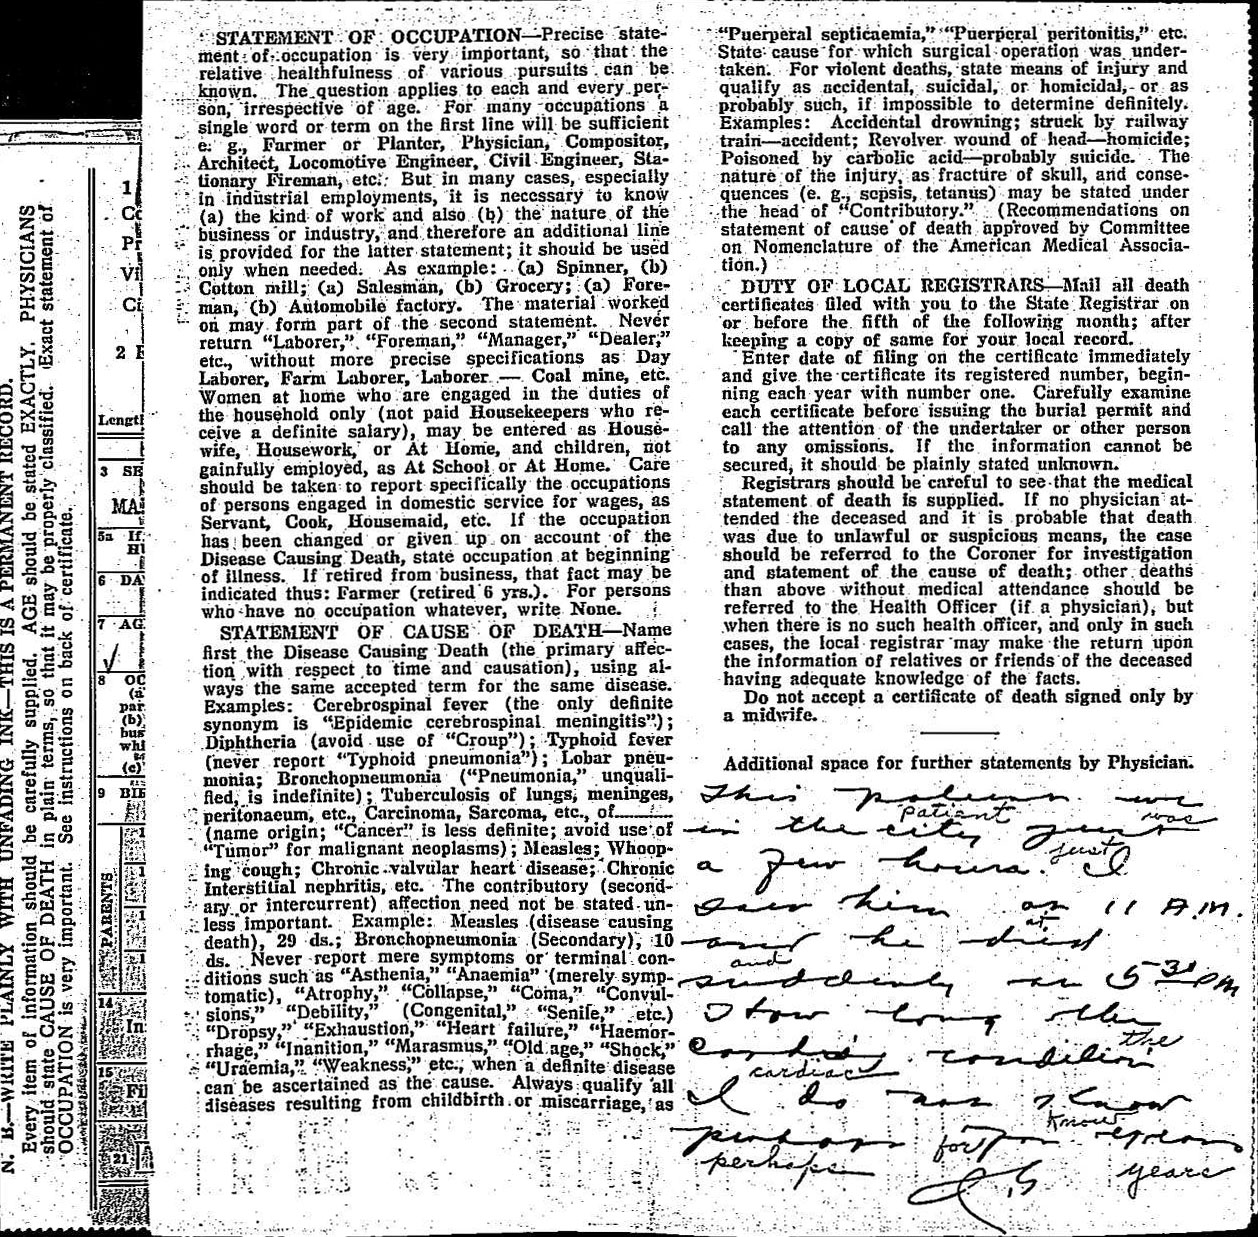 N. B.—WRITE PLAINLY WITH UNFADING INK—THIS IS A PERMANENT RECORD.
Every item of information should be carefully supplied. AGE should be stated EXACTLY. PHYSICIANS
should state CAUSE OF DEATH in plain terms, so that it may be properly classified. Exact statement of
OCCUPATION is very important. See instructions on back of certificate.
1
Co
Pr
Vil
Ci
2 F
Lengtl
3 SE
MA
5a If
H
6 DA
7 AG
8 OC
(a
par
(b)
bus
whi
(c)
9 BI
PARENTS
14
In
15
Fi
21
STATEMENT OF OCCUPATION—Precise state-
ment of occupation is very important, so that the
relative healthfulness of various pursuits can be
known. The question applies to each and every per-
son, irrespective of age. For many occupations a
single word or term on the first line will be sufficient
e. g., Farmer or Planter, Physician, Compositor,
Architect, Locomotive Engineer, Civil Engineer, Sta-
tionary Fireman, etc. But in many cases, especially
in industrial employments, it is necessary to know
(a) the kind of work and also (b) the nature of the
business or industry, and therefore an additional line
is provided for the latter statement; it should be used
only when needed. As example: (a) Spinner, (b)
Cotton mill; (a) Salesman, (b) Grocery; (a) Fore-
man, (b) Automobile factory. The material worked
on may form part of the second statement. Never
return "Laborer," "Foreman," "Manager," "Dealer,"
etc., without more precise specifications as Day
Laborer, Farm Laborer, Laborer — Coal mine, etc.
Women at home who are engaged in the duties of
the household only (not paid Housekeepers who re-
ceive a definite salary), may be entered as House-
wife, Housework, or At Home, and children, not
gainfully employed, as At School or At Home. Care
should be taken to report specifically the occupations
of persons engaged in domestic service for wages, as
Servant, Cook, Housemaid, etc. If the occupation
has been changed or given up on account of the
Disease Causing Death, state occupation at beginning
of illness. If retired from business, that fact may be
indicated thus: Farmer (retired 6 yrs.). For persons
who have no occupation whatever, write None.
STATEMENT OF CAUSE OF DEATH—Name
first the Disease Causing Death (the primary affec-
tion with respect to time and causation), using al-
ways the same accepted term for the same disease.
Examples: Cerebrospinal fever (the only definite
synonym is "Epidemic cerebrospinal meningitis");
Diphtheria (avoid use of "Croup"); Typhoid fever
(never report "Typhoid pneumonia"); Lobar pneu-
monia; Bronchopneumonia ("Pneumonia," unquali-
fied, is indefinite); Tuberculosis of lungs, meninges,
peritonaeum, etc., Carcinoma, Sarcoma, etc., of
(name origin; "Cancer" is less definite; avoid use of
"Tumor" for malignant neoplasms); Measles; Whoop-
ing cough; Chronic valvular heart disease; Chronic
Interstitial nephritis, etc. The contributory (second-
ary or intercurrent) affection need not be stated un-
less important. Example: Measles (disease causing
death), 29 ds.; Bronchopneumonia (Secondary), 10
ds. Never report mere symptoms or terminal con-
ditions such as "Asthenia," "Anaemia" (merely symp-
tomatic), "Atrophy," "Collapse," "Coma," "Convul-
sions," "Debility," (Congenital," "Senile," etc.)
"Dropsy," "Exhaustion," "Heart failure," "Haemor-
rhage," "Inanition," "Marasmus," "Old age," "Shock,"
"Uraemia," "Weakness," etc., when a definite disease
can be ascertained as the cause. Always qualify all
diseases resulting from childbirth or miscarriage, as
"Puerperal septicaemia," "Puerperal peritonitis," etc.
State cause for which surgical operation was under-
taken. For violent deaths, state means of injury and
qualify as accidental, suicidal, or homicidal, or as
probably such, if impossible to determine definitely.
Examples: Accidental drowning; struck by railway
train—accident; Revolver wound of head—homicide;
Poisoned by carbolic acid—probably suicide. The
nature of the injury, as fracture of skull, and conse-
quences (e. g., sepsis, tetanus) may be stated under
the head of "Contributory." (Recommendations on
statement of cause of death approved by Committee
on Nomenclature of the American Medical Associa-
tion.)
DUTY OF LOCAL REGISTRARS—Mail all death
certificates filed with you to the State Registrar on
or before the fifth of the following month; after
keeping a copy of same for your local record.
Enter date of filing on the certificate immediately
and give the certificate its registered number, begin-
ning each year with number one. Carefully examine
each certificate before issuing the burial permit and
call the attention of the undertaker or other person
to any omissions. If the information cannot be
secured, it should be plainly stated unknown.
Registrars should be careful to see that the medical
statement of death is supplied. If no physician at-
tended the deceased and it is probable that death
was due to unlawful or suspicious means, the case
should be referred to the Coroner for investigation
and statement of the cause of death; other deaths
than above without medical attendance should be
referred to the Health Officer (if a physician), but
when there is no such health officer, and only in such
cases, the local registrar may make the return upon
the information of relatives or friends of the deceased
having adequate knowledge of the facts.
Do not accept a certificate of death signed only by
a midwife.
Additional space for further statements by Physician.
This patient was
Patient was
in the city just
just
a few hours. I
saw him at 11 A.M.
at
and he died
and
suddenly at 5 30 PM
How long the
the
cardiac condition
cardiac
I do not know
know
perhaps for years
perhaps for years